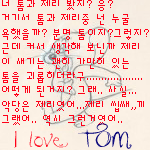 너 톰과 제리 봤지? 응?
거기서 톰과 제리중 넌 누굴
응했을까? 분명 톰이지?그렇지?
근데 커서 생각해 보니깐 제리
이 새끼는 얘가 가만히 있는
톰을 괴롭히더라고............
어떻게 된거지? 그래.. 사실...
악당은 제리였어..제리 씨빼..끼
그랬어.. 역시 그런거였어..
i love TOM